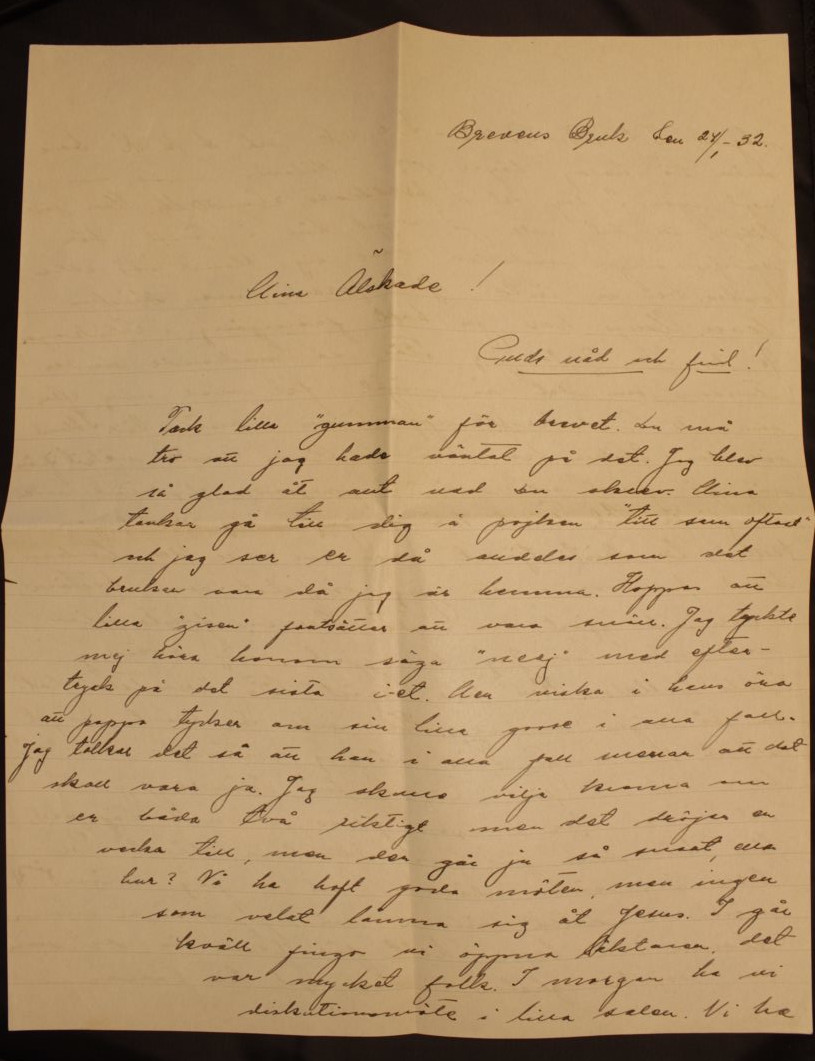 Brevens Bruk den 24/1 - 32.
Mina Älskade !
Guds nåd och frid !
Tack lilla "gumman" för brevet. Du må
tro att jag hade väntat på det. Jag blev
så glad åt allt vad Du skrev. Mina
tankar gå till dig å pojken "titt som oftast"
och jag ser er då alldeles som det
brukar vara då jag är hemma. Hoppas att
lilla "gisen" fortsätter att vara snäll. Jag tyckte
mej höra honom säga "neej" med efter-
tryck på det sista i-et. Men viska i hans öra
att pappa tycker om sin lilla gosse i alla fall.
Jag tolkar det så att han i alla fall menar att det
skall vara ja. Jag skulle vilja krama om
er båda två riktigt men det dröjer en
vecka till, men den går ju så snart, eller
hur? Vi ha haft goda möten, men ingen
som velat lämna sig åt Jesus. I går
kväll fingo vi öppna läktaren, det
var mycket folk. I morgon ha vi
diskutionsmöte i lilla salen. Vi ha